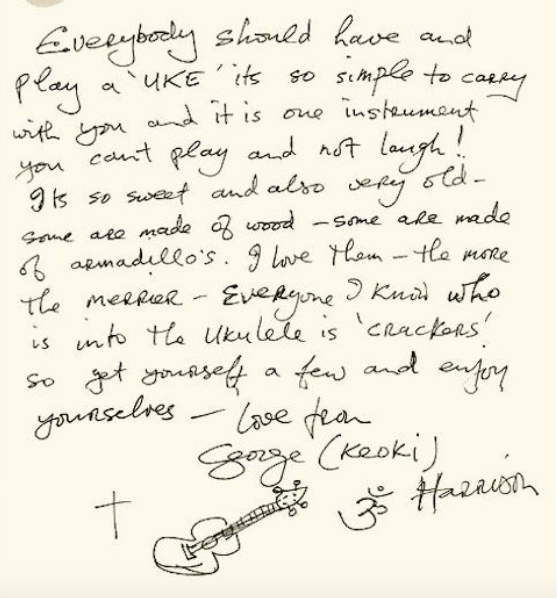 Everybody should have and
play a 'UKE' its so simple to carry
with you and it is one instrument
you can't play and not laugh!
Its so sweet and also very old-
some are made of wood - some are made
of armadillo's. I love them - the more
the merrier - Everyone I know who
is into the ukulele is 'crackers'
so get yourself a few and enjoy
yourselves - Love from
George (Keoki)
ॐ Harrison